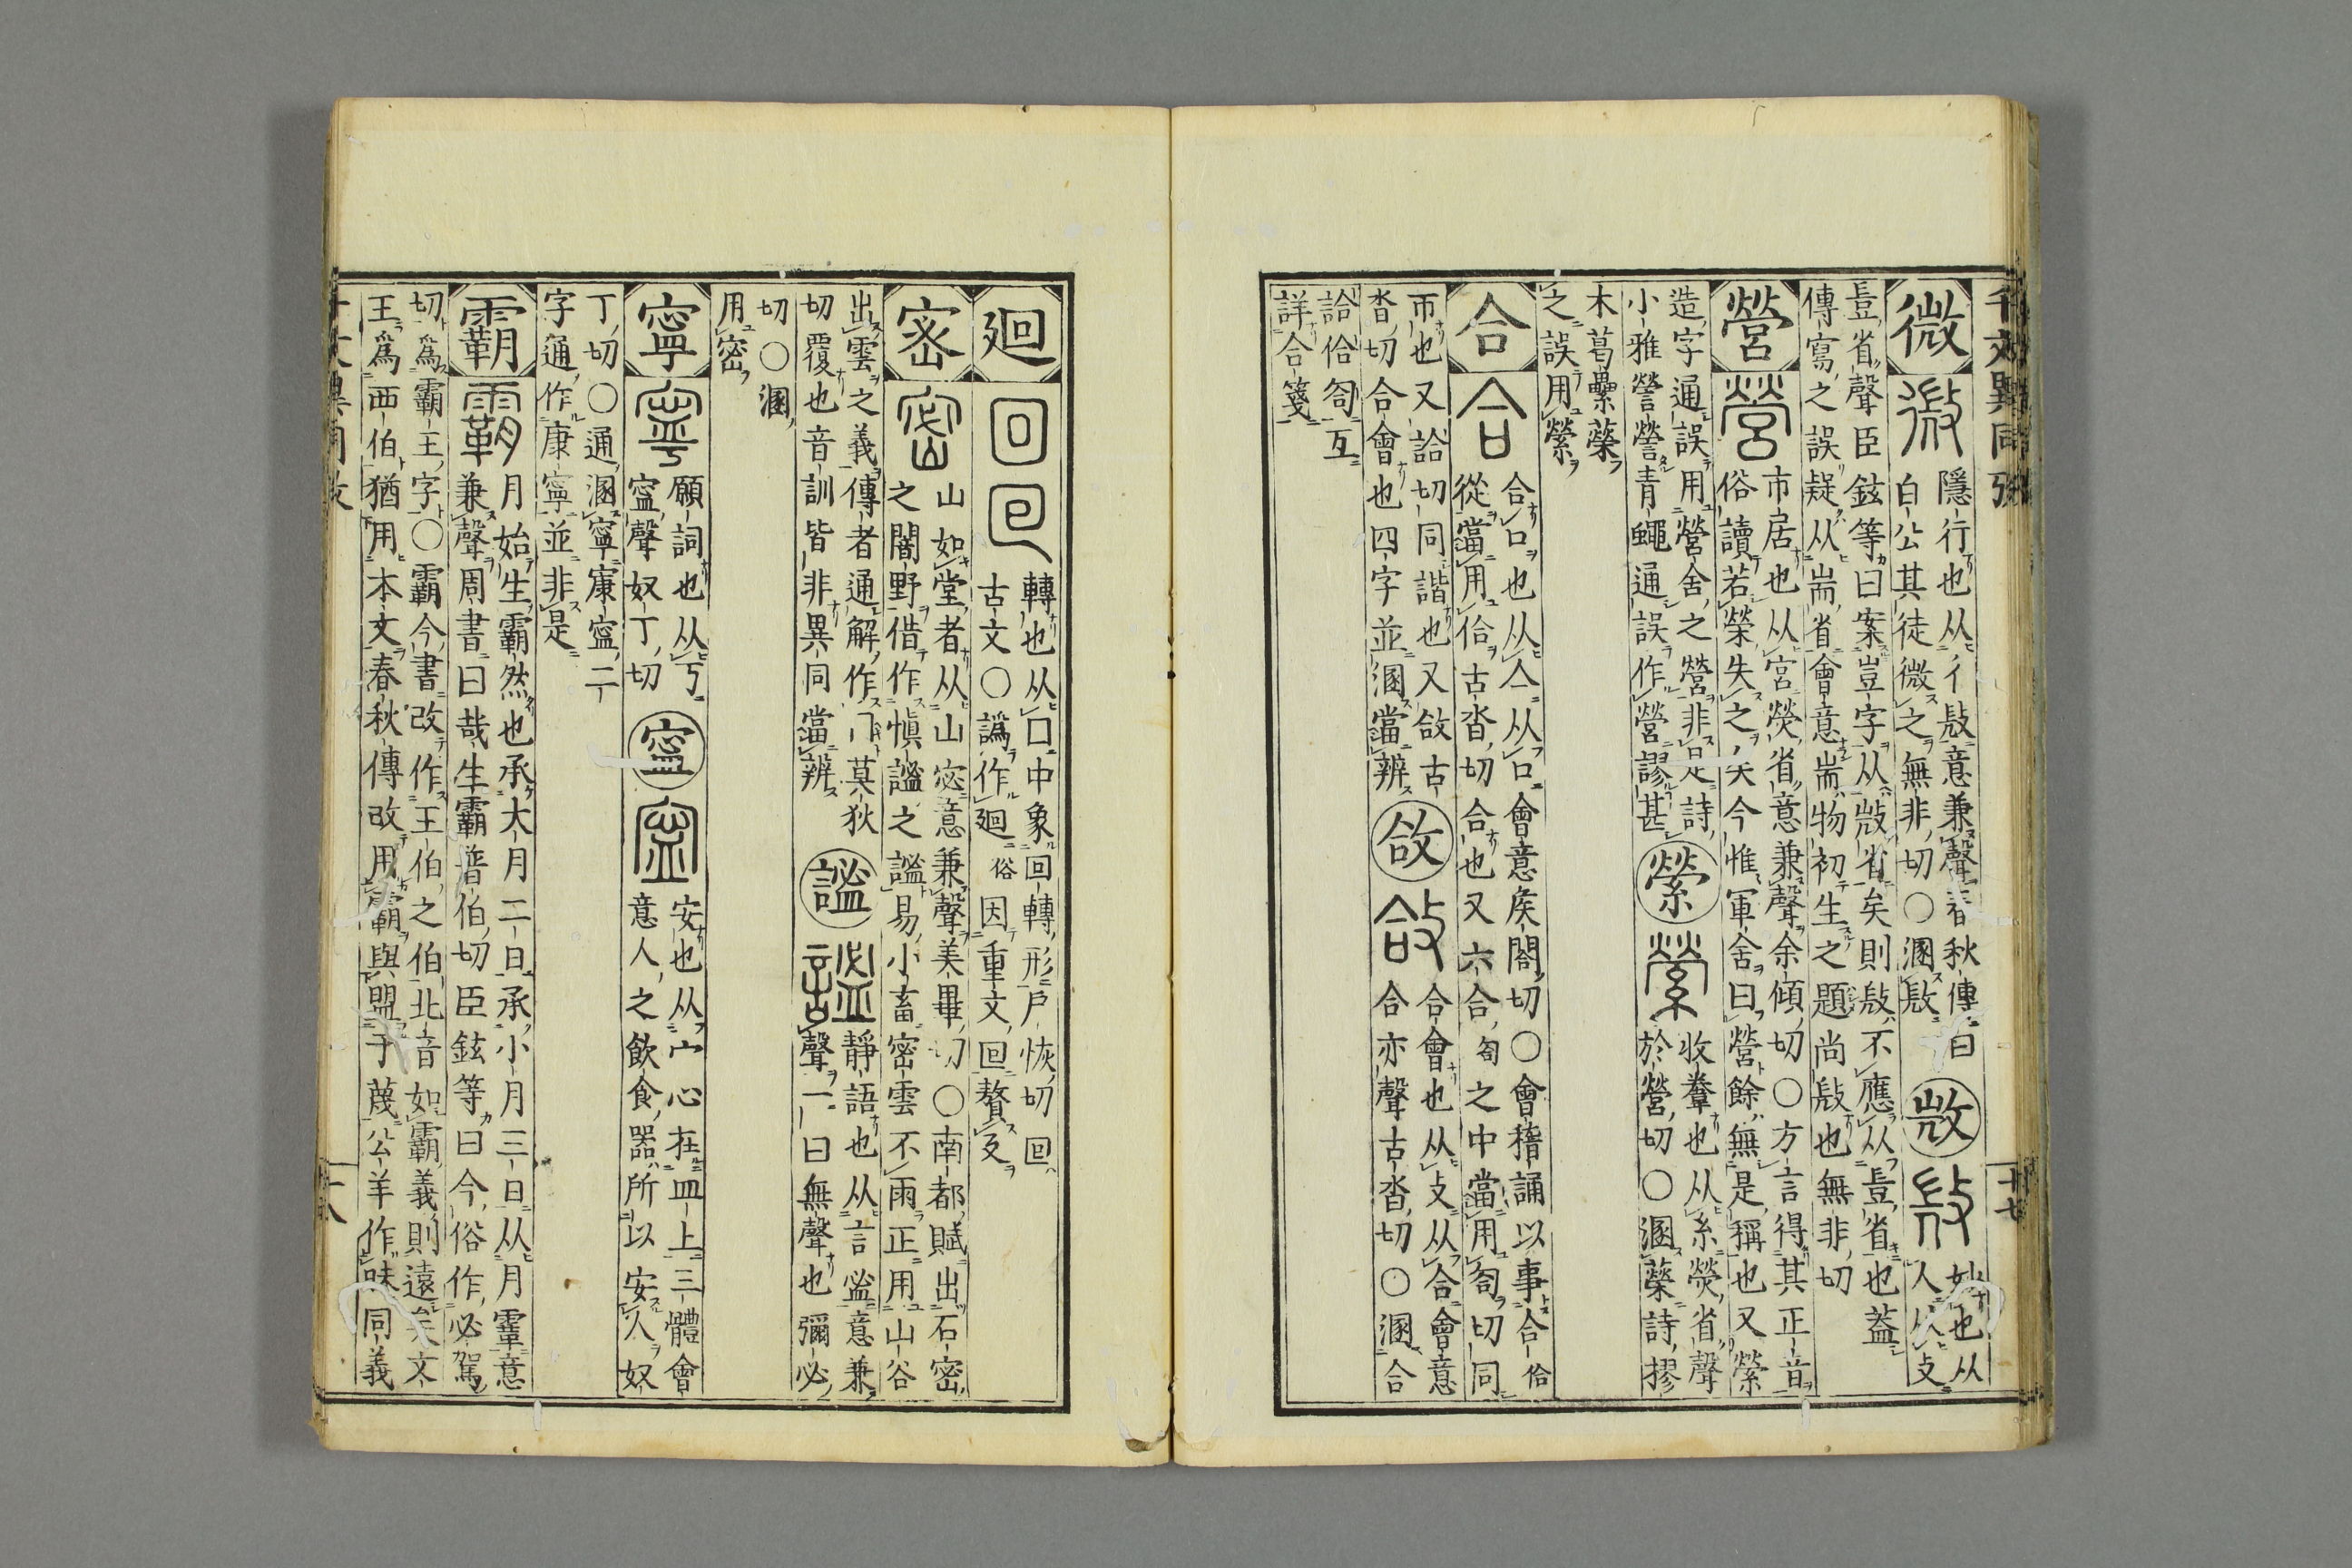 千文異同
十七
微
隱行也从彳敚意兼聲春秋傳曰
白公其徒微之無非切〇溷敚
敚
妙也从
人从攴
豈省聲臣鉉等曰案豈字从敚省矣則敚不應从豈省也蓋
傳寫之誤疑从耑省會意耑物初生之題尚敚也無非切
營
市居也从宮熒省意兼聲余傾切〇方言得其正音
俗讀若榮失之矣今惟軍舍曰營餘無是稱也又縈
造字通誤用營舍之營非是詩
小雅營營青蠅通誤作營謬甚
縈
收韏也从系熒省聲
於營切〇溷蘩詩摎
木葛藟蘩
之誤用縈
合
合口也从亼从口會意矦閤切〇會稽誦以事合佮
從當用佮古沓切合也又六合匌之中當用匌切同
帀也又詥切同諧也又敆古
沓切合會也四字並溷當辨
敆
合會也从攴从合會意
合亦聲古沓切〇溷合
詥佮匌互
詳合箋
廻
回回
轉也从囗中象回轉形戶恢切回
古文〇譌作廻俗因重文回贅廴
密
山如堂者从山宓意兼聲美畢切〇南都賦出石密
之闇野借作愼謐之謐易小畜密雲不雨正用山谷
出雲之義傳者通解作冂莫狄
切覆也音訓皆非異同當辨
謐
靜語也从言监意兼
聲一曰無聲也彌必
切〇溷
用密
寧
願詞也从丂
寍聲奴丁切
寍
安也从宀心在皿上三體會
意人之飲食器所以安人奴
丁切〇通溷寧寍二
字通作康寧並非是
霸
月始生霸然也承大月二日承小月三日从月䨣意
兼聲周書曰哉生霸普伯切臣鉉等曰今俗作必駕
切爲霸王字〇霸今書改作王伯之伯北音如霸義則遠矣文
王爲西伯猶用本文春秋傳改用霸與盟于蔑公羊作昧同義
十八